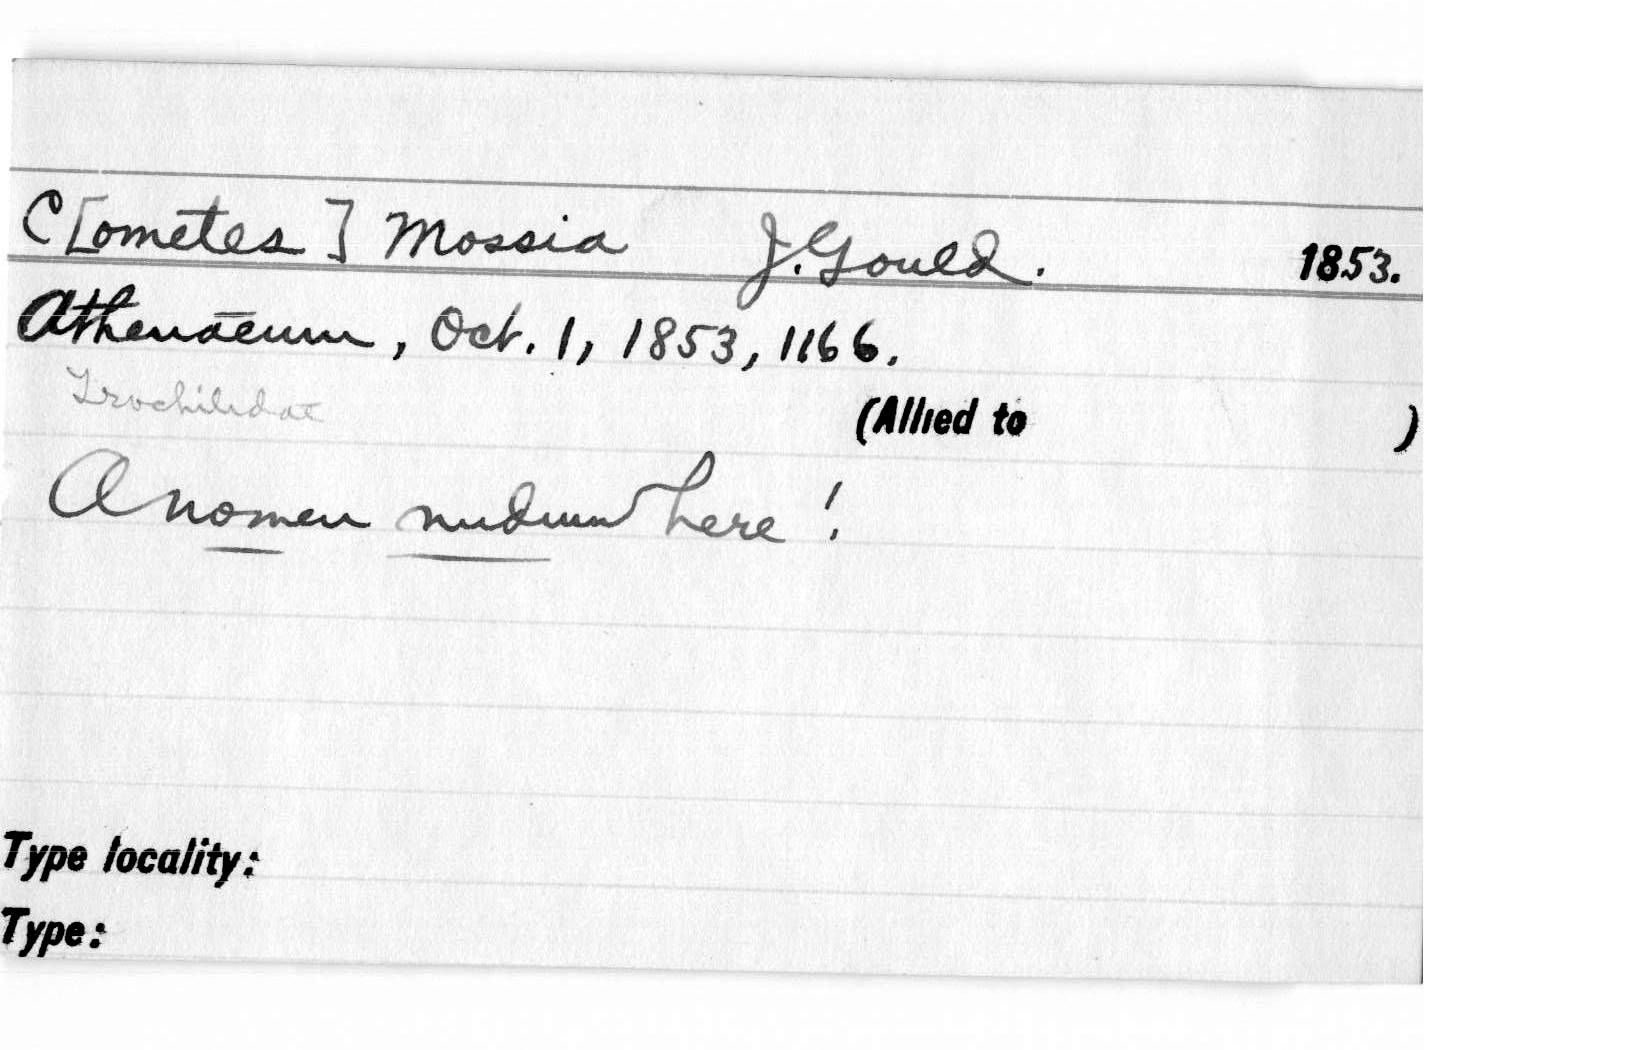 C[ometes] Mossia J. Gould. 1853.
Athenaeum, Oct. 1, 1853, 1166.
Trochilidae
(Allied to )
A nomen nudum here!
Type locality:
Type: